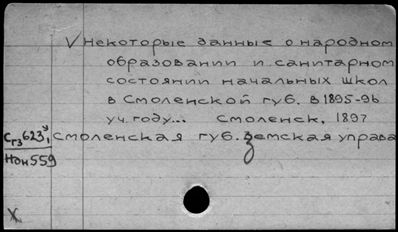 √ Некоторые данные о народном
образовании и санитарном
состоянии начальных школ
в Смоленской губ. в 1895-96
уч. году... Смоленск, 1897
Смоленская губ. земская управа
Ндн 559
X